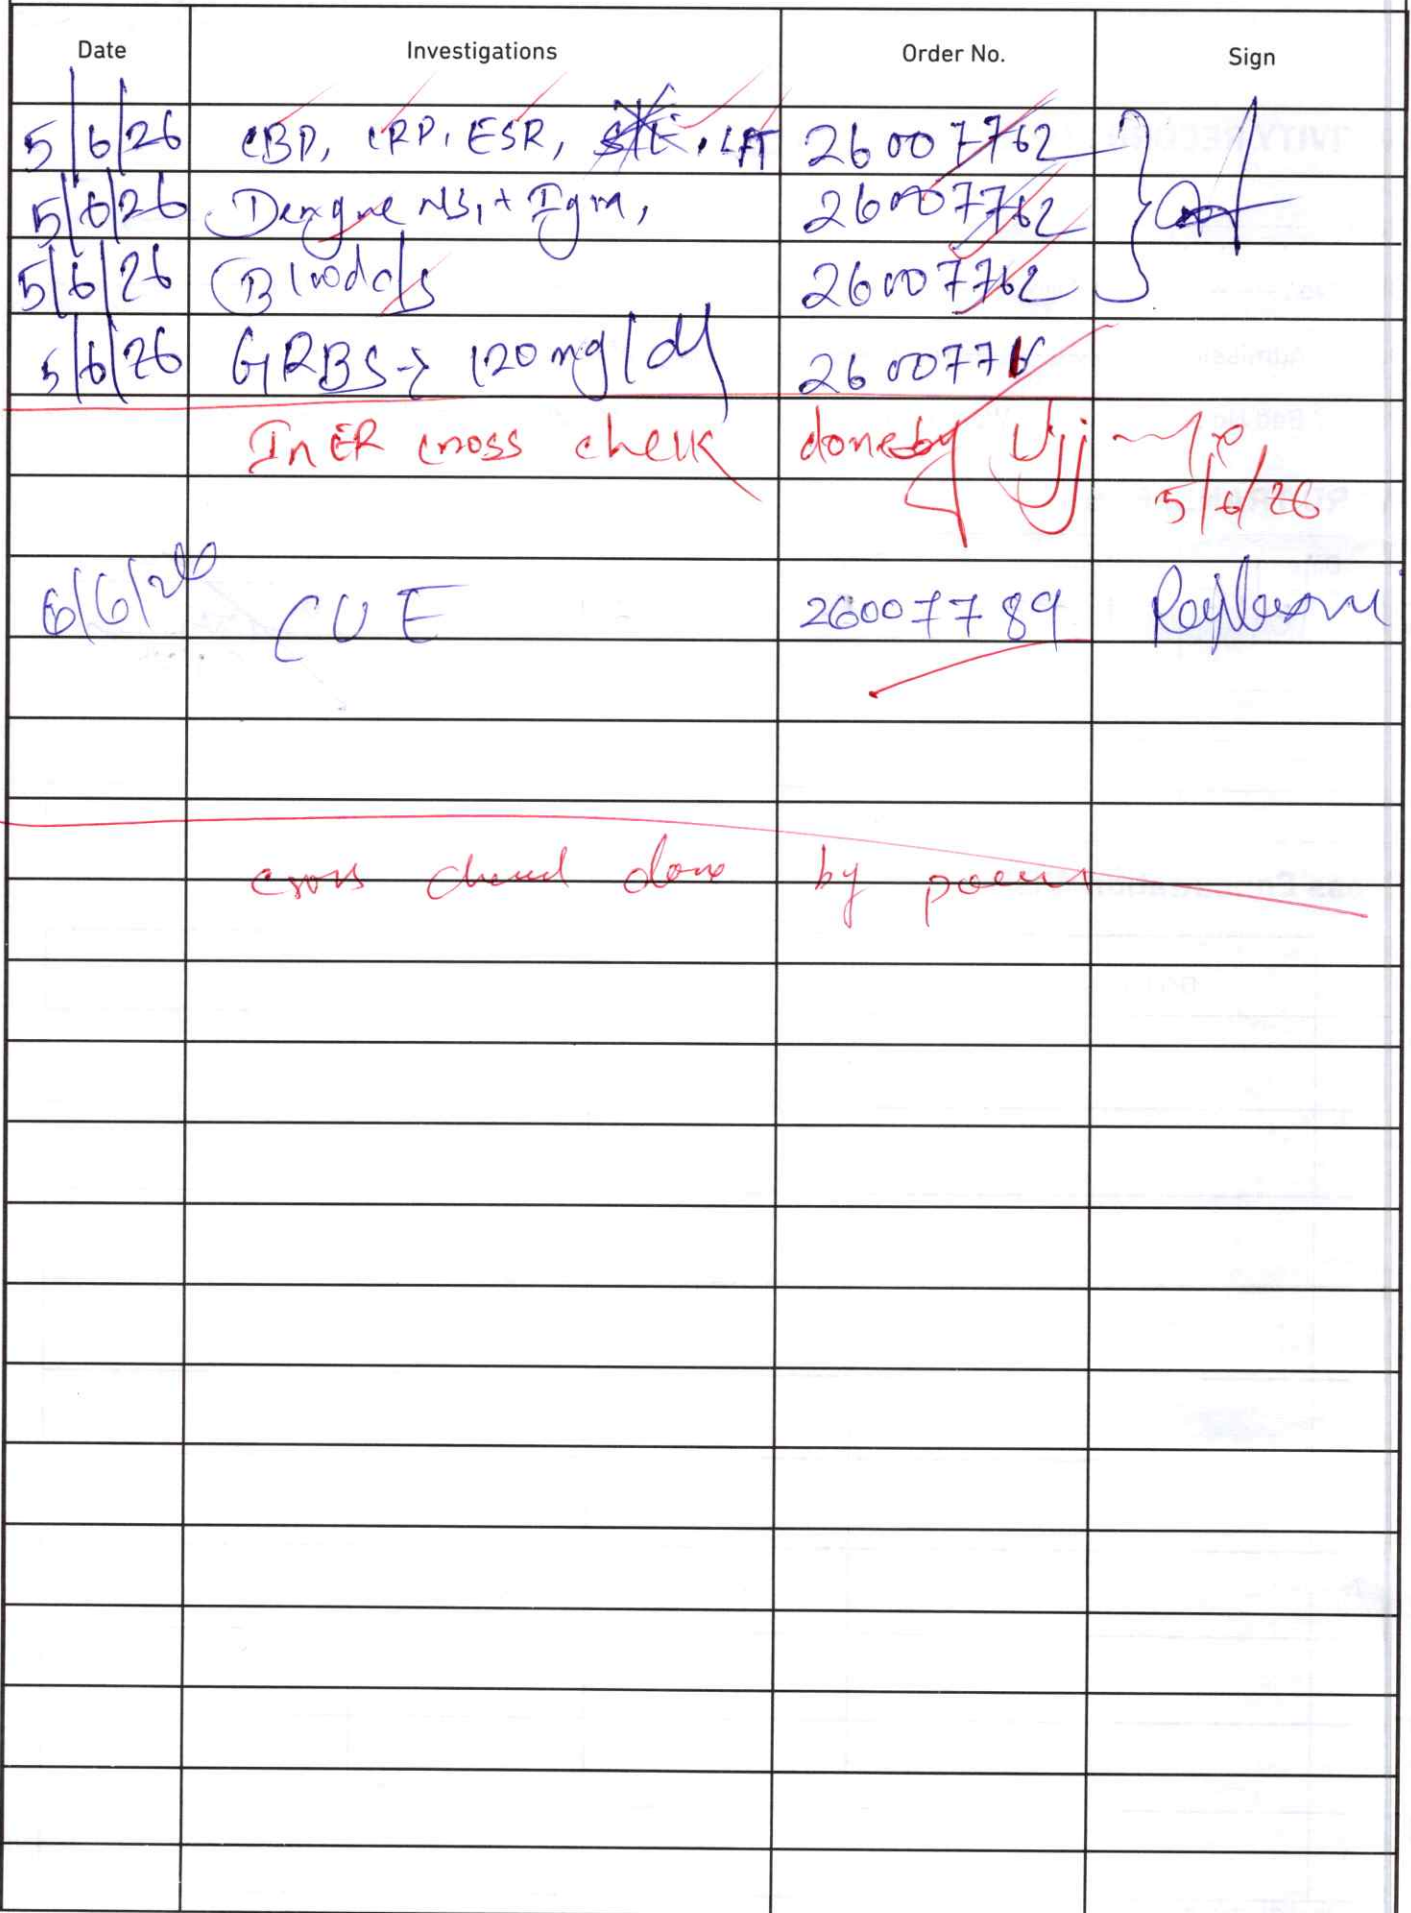 Date Investigations Order No. Sign
5/6/26 CBP, CRP, ESR, LFT 26007762
5/6/26 Dengue NS1 + Igm, 26007762
5/6/26 Blood c/s 26007762
5/6/26 GRBS → 120 mg/dl 2600776
In ER cross check done by Ujj
5/6/26
6/6/26 CUE 26007789
cross done by